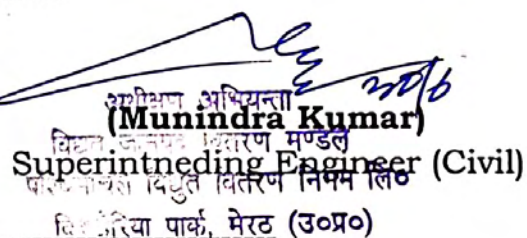 30/6
अधीक्षण अभियन्ता
(Munindra Kumar)
विद्युत वितरण मण्डल
Superintneding Engineer (Civil)
विद्युत वितरण निगम लि०
पार्क, मेरठ (उ०प्र०)